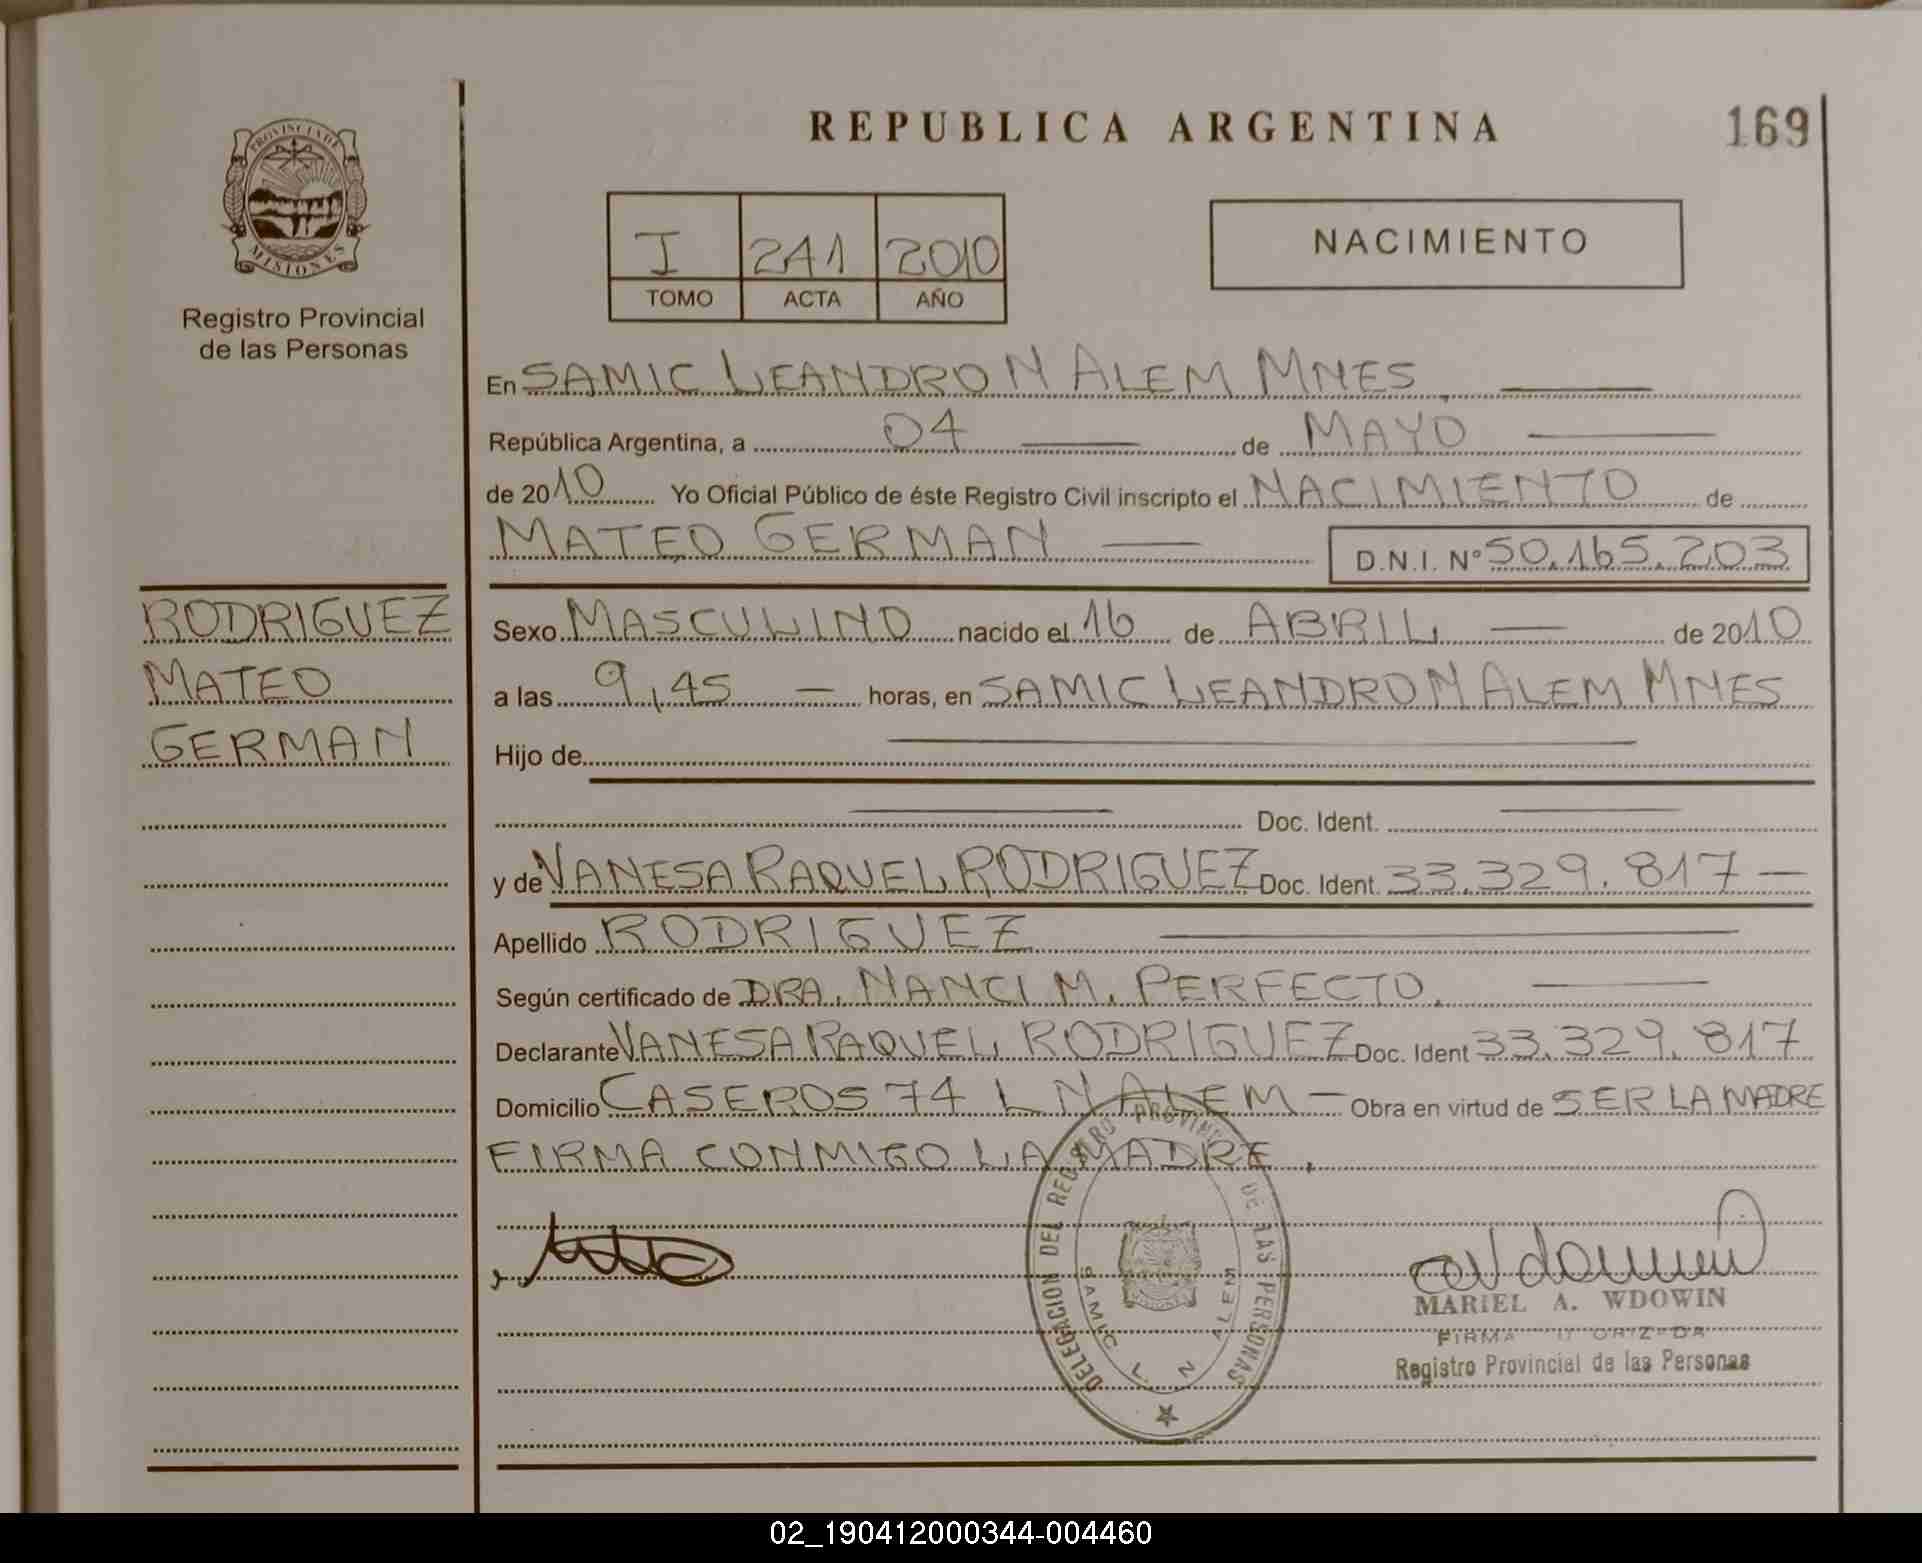 REPUBLICA ARGENTINA
169
PROVINCIA DE
MISIONES
Registro Provincial
de las Personas
I 241 2010
TOMO ACTA AÑO
NACIMIENTO
En SAMIC LEANDRO N ALEM MNES
República Argentina, a 04 de MAYO
de 2010 Yo Oficial Público de éste Registro Civil inscripto el NACIMIENTO de
MATEO GERMAN D.N.I. Nº 50.165.203
RODRIGUEZ
MATEO
GERMAN
Sexo MASCULINO nacido el 16 de ABRIL de 2010
a las 9,45 horas, en SAMIC LEANDRO N ALEM MNES
Hijo de
Doc. Ident.
y de VANESA RAQUEL RODRIGUEZ Doc. Ident. 33.329.817
Apellido RODRIGUEZ
Según certificado de DRA. NANCI M. PERFECTO.
Declarante VANESA RAQUEL RODRIGUEZ Doc. Ident 33.329.817
Domicilio CASEROS 74 L N ALEM Obra en virtud de SER LA MADRE
FIRMA CONMIGO LA MADRE.
DELEGACION DEL REGISTRO PROVINCIAL DE LAS PERSONAS
SAMIC L. N ALEM
MARIEL A. WDOWIN
FIRMA
Registro Provincial de las Personas
02_190412000344-004460